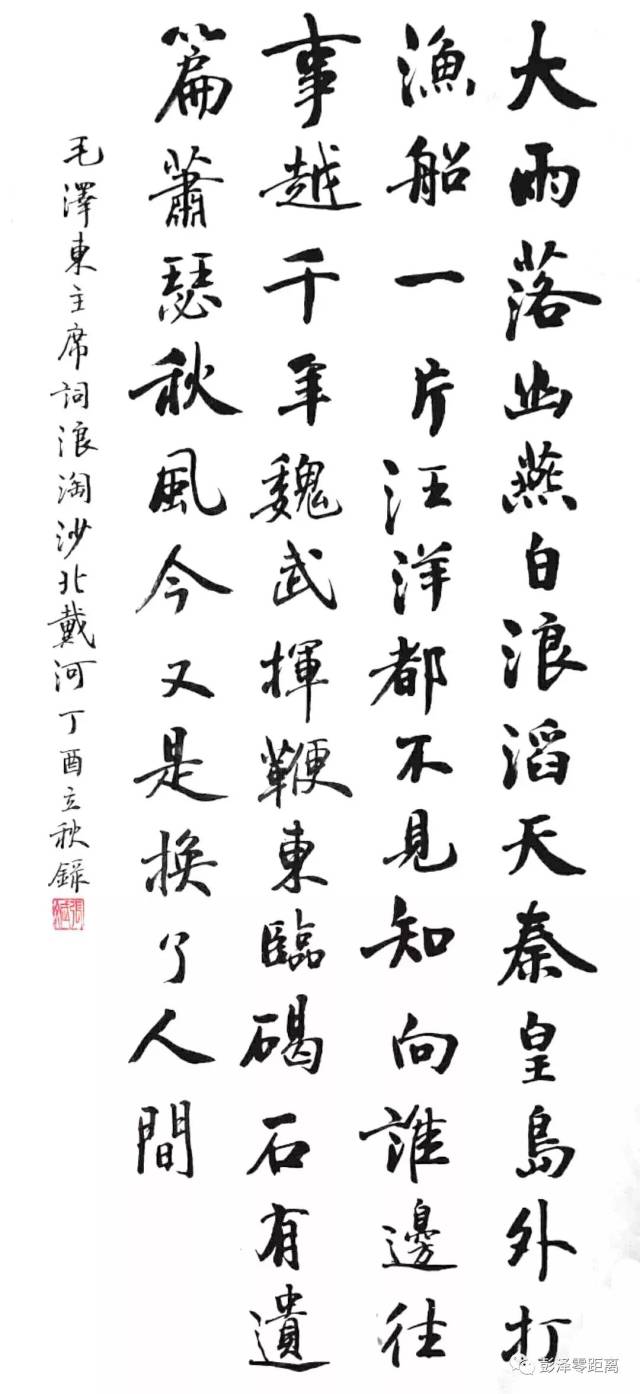 大雨落幽燕白浪滔天秦皇島外打
漁船一片汪洋都不見知向誰邊往
事越千年魏武揮鞭東臨碣石有遺
篇蕭瑟秋風今又是換了人間
毛澤東主席詞浪淘沙北戴河丁酉立秋錄
彭泽零距离